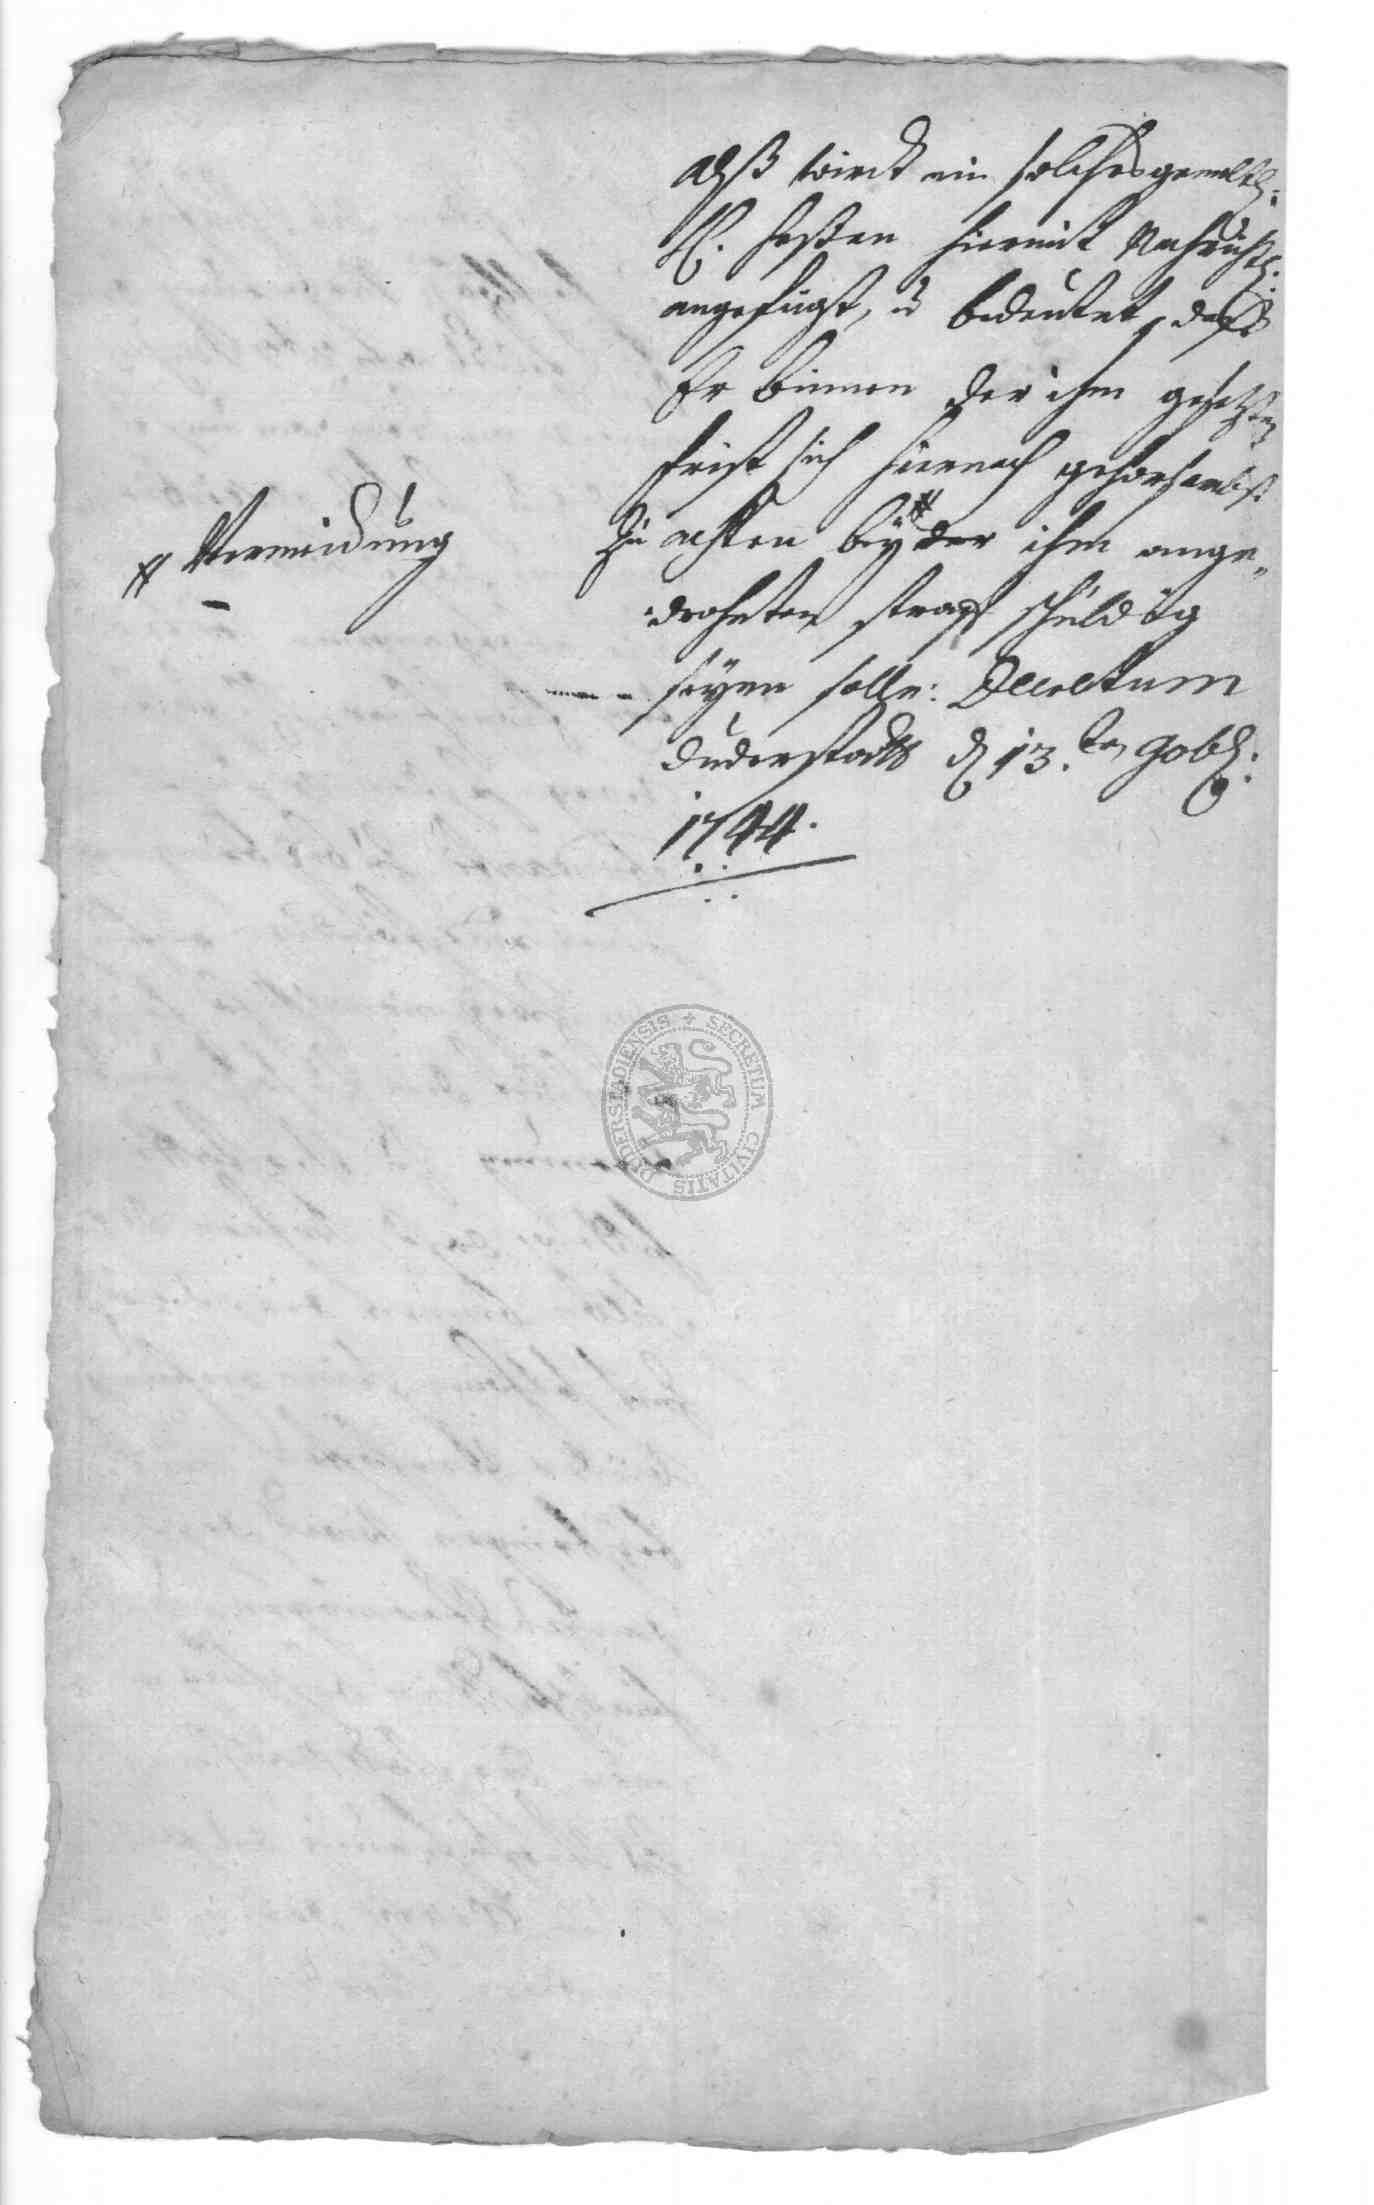 alß wird ein solches gemelt.
H. Hoßen hiermit Nachrichtl.
angefügt, u bedeutet, daß
Er binnen der ihm gesetzten
frist sich hiernach gehorsambst
zu achten bey # der ihm ange„
droheten straff schuldig
seyen solle: Decretum
Duderstadt d 13.ten 9obr:
1744.
# Vermeidung
DUDERSTADIENSIS + SECRETUM CIVITATIS